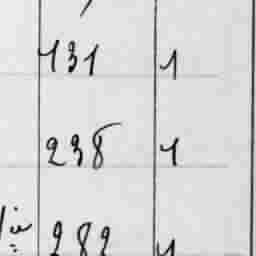 131 1
238 1
282 1